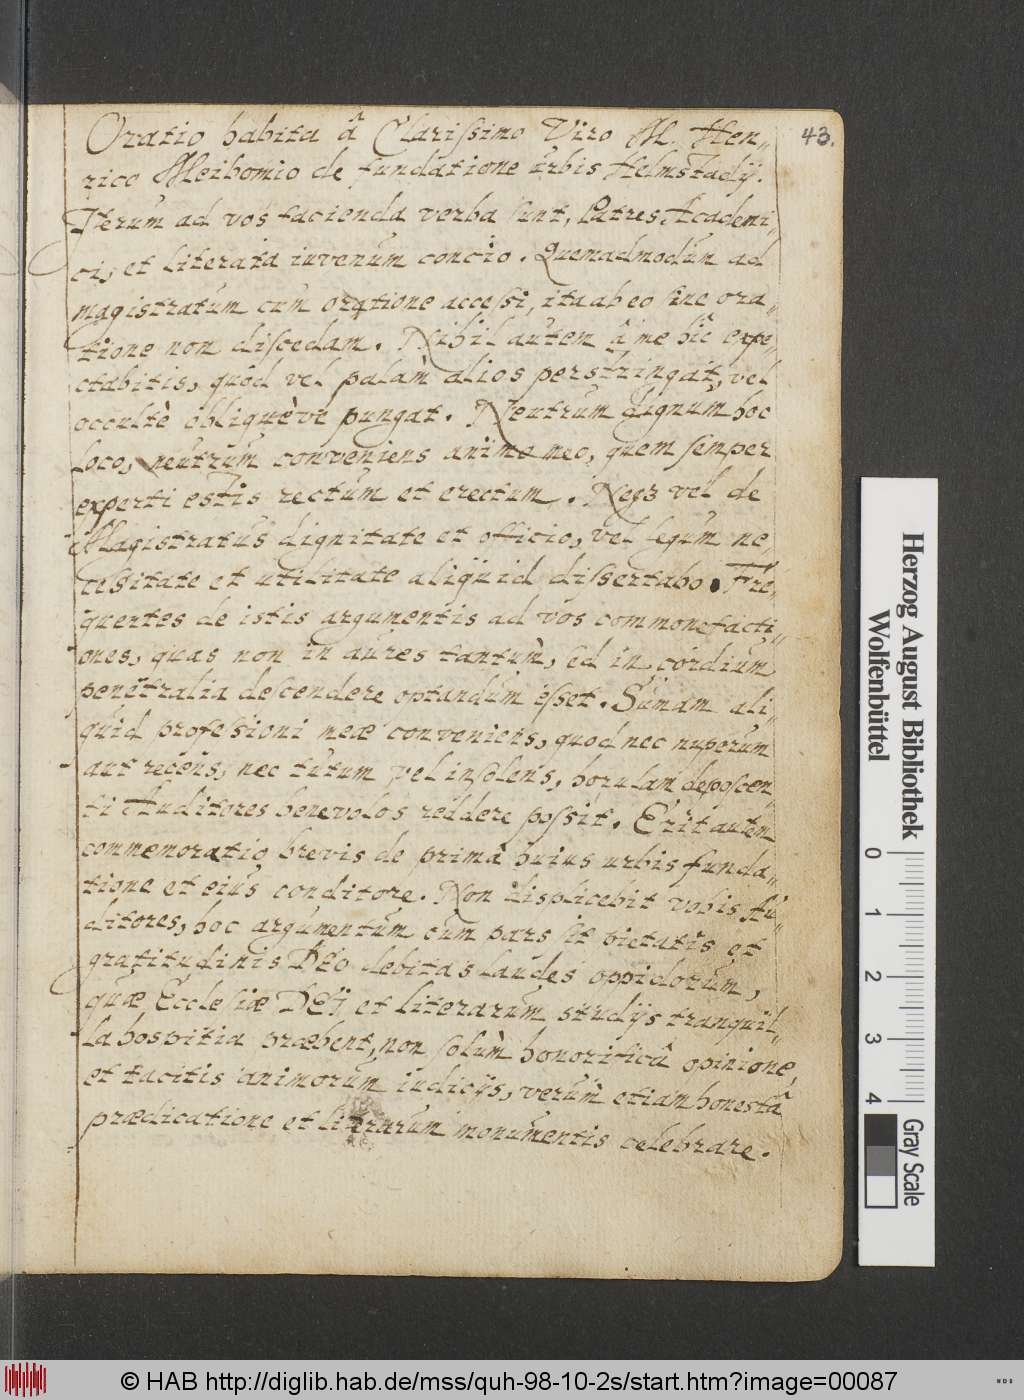 43.
Oratio habita â Clarissimo Viro M. Hen„
rico Meibomio de fundatione urbis Helmstadij.
Iterum ad vos facienda verba sunt, Patres Academi„
ci, et literata iuvenum concio. Quemadmodum ad
magistratum cum oratione accessi, ita ab eo sine ora„
tione non discedam. Nihil autem â me hîc expe„
ctabitis, quod vel palàm alios perstringat, vel
occultè obliquève pungat. Neutrum dignum hoc
loco, neutrum conveniens animo meo, quem semper
experti estis rectum et erectum. Neqз vel de
Magistratus dignitate et officio, vel legum ne„
cessitate et utilitate aliquid dissertabo. Fre„
quentes de istis argumentis ad vos commonefacti„
ones, quas non in aures tantùm, sed in cordium
penetralia descendere optandum esset. Sumam ali„
quid professioni meæ conveniens, quod nec nuperum
aut recens, nec tutum vel insolens, horulam deposcen„
ti Auditores benevolos reddere possit. Erit autem
commemoratio brevis de primâ huius urbis funda„
tione et eius conditore. Non displicebit vobis Au„
ditores, hoc argumentum cum pars sit pietatis et
gratitudinis DEO debitas laudes oppidorum,
quæ Ecclesiæ DEI et literarum studijs tranquil„
la hospitia præbent, non solùm honorificâ opinione,
et tacitis animorum iudicijs, verùm etiam honestâ
prædicatione et literarum monumentis celebrare.
Herzog August Bibliothek
Wolfenbüttel
0 1 2 3 4
Gray Scale
© HAB http://diglib.hab.de/mss/quh-98-10-2s/start.htm?image=00087